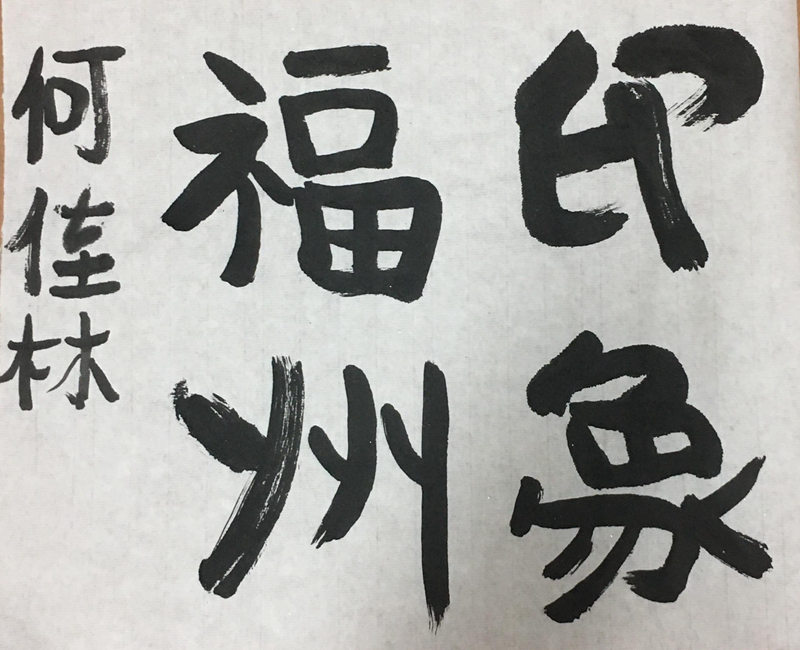 印象
福州
何佳林